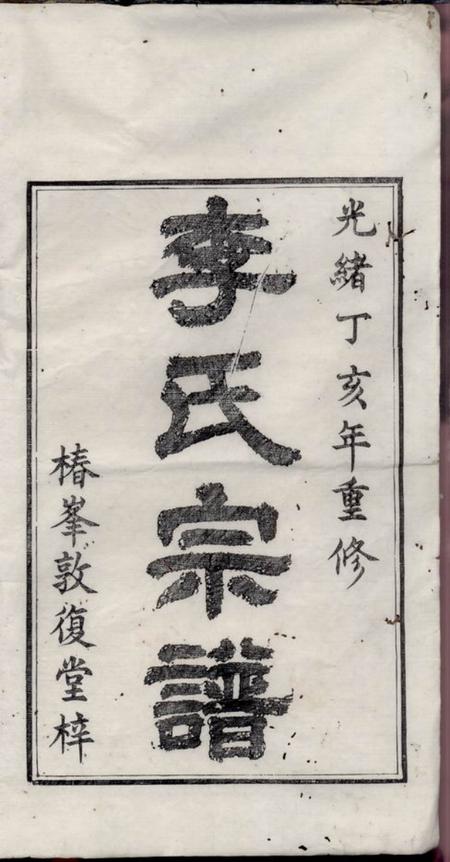 光緒丁亥年重修
李氏宗譜
椿峯敦復堂梓